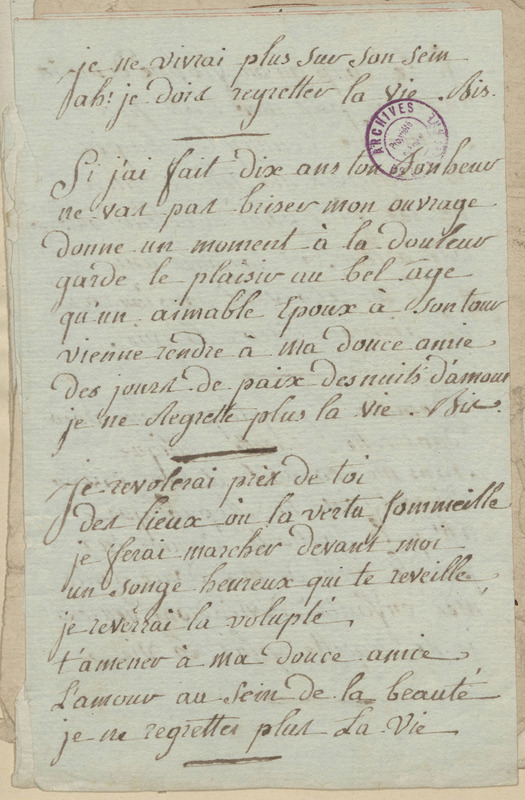 je ne vivrai plus sur son sein
ah! je dois regretter la vie. Bis.
ARCHIVES
Si j'ai fait dix ans ton bonheur
ne vas pas briser mon ouvrage
donne un moment à la douleur
garde le plaisir au bel age
qu'un aimable Epoux à son tour
vienne rendre à ma douce amie
des jours de paix des nuits d'amour
je ne Regrette plus la vie. Bis.
Je revolerai près de toi
des lieux où la vertu sommeille
je ferai marcher devant moi
un songe heureux qui te reveille
je reverrai la volupté
t'amener à ma douce amie
L'amour au sein de la beauté
je ne regrettes plus La Vie